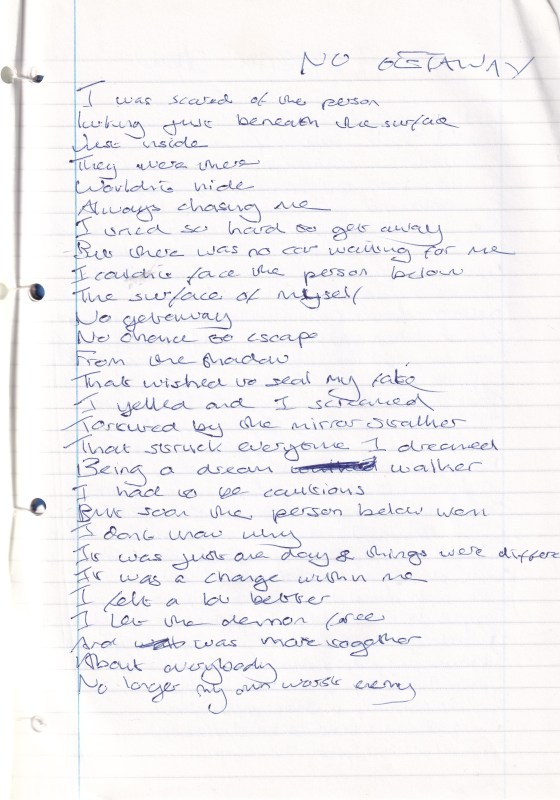 NO GETAWAY
I was scared of the person
lurking just beneath the surface
Just inside
They were there
Wouldn't hide
Always chasing me
I tried so hard to get away
But there was no car waiting for me
I couldn't face the person below
The surface of myself
No getaway
No chance to escape
From the shadow
That wished to seal my fate
I yelled and I screamed
Tortured by the mirror stalker
That struck everyone I dreamed
Being a dream walker
I had to be cautious
But soon the person below won
I dont know why
It was just one day & things were differe
It was a change within me
I felt a lot better
I let the demon free
And was more together
About everybody
No longer my own worst enemy